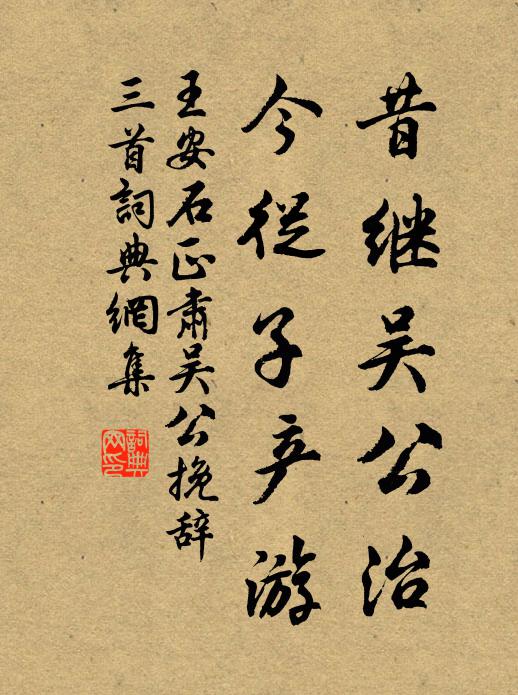 昔继吴公治
今從子产游
王安石正肃吴公挽辞
三首詞典網集
詞典网印